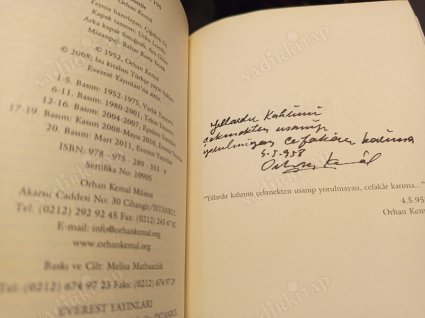 Yayına hazırlayan: Çiğdem
Kapak tasarım: Utku
Arka kapak fotoğraf:
Mizanpaj: Bahar Kuru Yerek
© 1952, Orhan Kemal
© 2008; bu kitabın Türkçe yayın hakları
Everest Yayınları'na aittir.
1-5. Basım: 1952-1975, Varlık Yayınları
6-11. Basım: 1980-2001, Tekin Yayınevi
12-16. Basım: 2004-2007, Epsilon Yayınları
17-19. Basım: Kasım 2008-Mayıs 2010, Everest
20. Basım: Mart 2011, Everest Yayınları
ISBN: 978 - 975 - 289 - 553 - 9
Sertifika No: 10905
Orhan Kemal Müzesi
Akarsu Caddesi No: 30 Cihangir/İSTANBUL
Tel: (0212) 292 92 45 Fax: (0212) 243 67 82
E-mail: info@orhankemal.org
www.orhankemal.org
Baskı ve Cilt: Melisa Matbaacılık
Tel: (0212) 674 97 23 Faks: (0212) 674 97 29
EVEREST YAYINLARI
Yıllardır kahrımı
çekmekten usanıp
yorulmayan cefakâr karıma
Orhan Kemal
"Yıllardır kahrımı çekmekten usanıp yorulmayan, cefakâr karıma..."
4.5.95
Orhan Kemal
nadirkitap